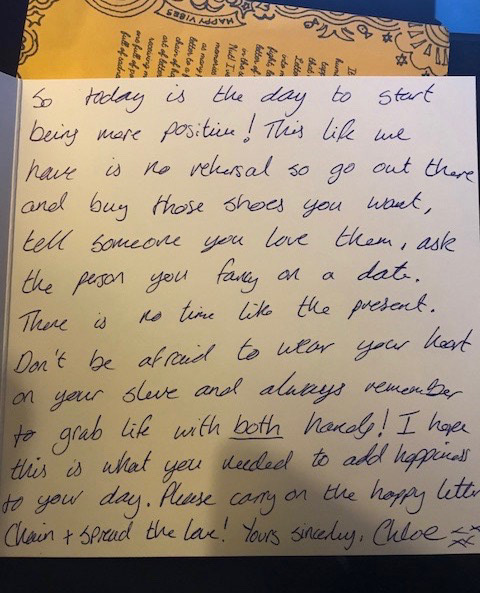 HAPPY VIBES
that
into
letter of
in the
Not! I've
memories
as many
letter to a
chain of
art of
receiving
are full of
full of
So today is the day to start
being more positive! This life we
have is no rehersal so go out there
and buy those shoes you want,
tell someone you love them, ask
the person you fancy on a date.
There is no time like the present.
Don't be afraid to wear your heart
on your sleve and always remember
to grab life with both hands! I hope
this is what you needed to add happiness
to your day. Please carry on the happy letter
Chain + spread the love! Yours sincerley, Chloe xx